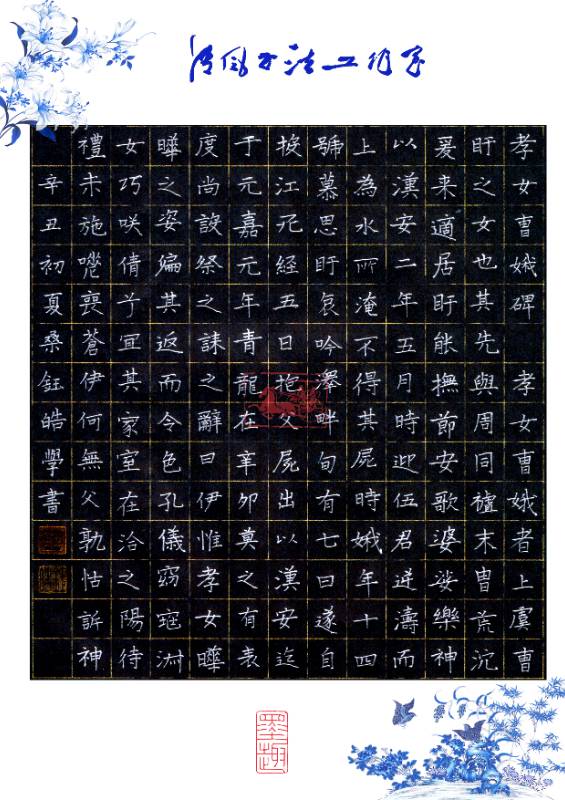 清风书法工作室
孝女曹娥碑 孝女曹娥者上虞曹
盱之女也其先與周同祖末冑荒沉
爰来適居盱能撫節安歌婆娑樂神
以漢安二年五月時迎伍君逆濤而
上為水所淹不得其屍時娥年十四
號慕思盱哀吟澤畔旬有七日遂自
投江死經五日抱父屍出以漢安迄
于元嘉元年青龍在辛卯莫之有表
度尚設祭之誄之辭曰伊惟孝女曄
曄之姿偏其返而令色孔儀窈窕淑
女巧咲倩兮宜其家室在洽之陽待
禮未施嗟喪蒼伊何無父孰怙訴神
辛丑初夏桑鈺皓學書
墨趣